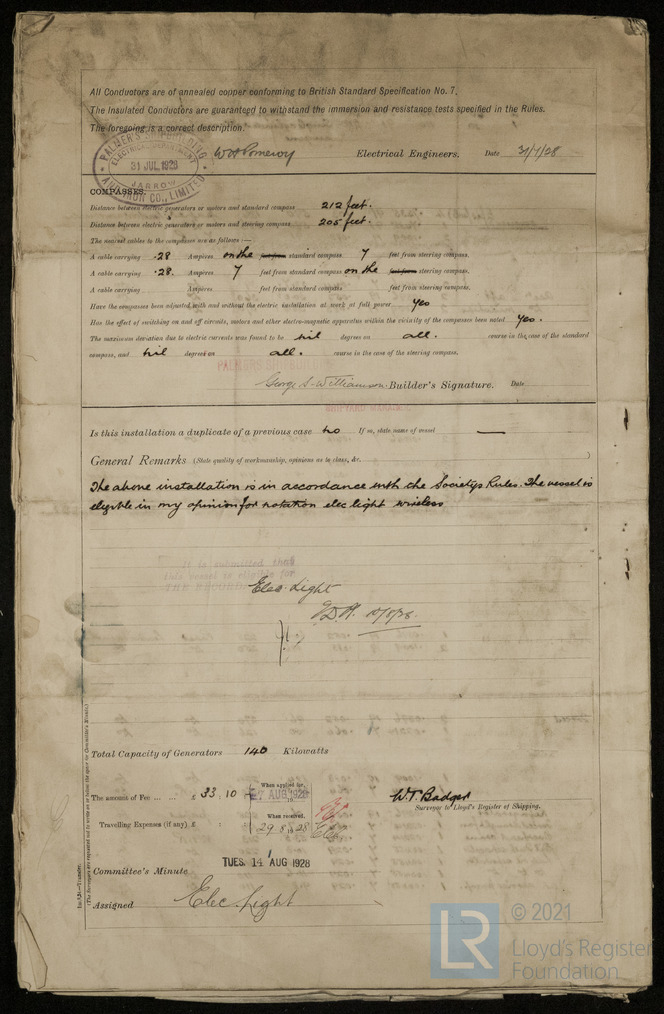 All Conductors are of annealed copper conforming to British Standard Specification No. 7.
The Insulated Conductors are guaranteed to withstand the immersion and resistance tests specified in the Rules.
The foregoing is a correct description.
PALMER'S SHIPBUILDING
ELECTRICAL DEPARTMENT
31 JUL 1928
JARROW
AND IRON CO., LIMITED
W H Pomeroy Electrical Engineers. Date 31/7/28
COMPASSES.
Distance between electric generators or motors and standard compass 212 feet.
Distance between electric generators or motors and steering compass 205 feet.
The nearest cables to the compasses are as follows:—
A cable carrying .28 Amperes on the standard compass 7 feet from steering compass.
A cable carrying .28. Amperes 7 feet from standard compass on the steering compass.
A cable carrying Amperes feet from standard compass feet from steering compass.
Have the compasses been adjusted with and without the electric installation at work at full power yes
Has the effect of switching on and off circuits, motors and other electro-magnetic apparatus within the vicinity of the compasses been noted yes.
The maximum deviation due to electric currents was found to be nil degrees on all. course in the case of the standard
compass, and nil degrees on all. course in the case of the steering compass.
George S. Williamson Builder's Signature. Date
SHIPYARD MANAGER
Is this installation a duplicate of a previous case no If so, state name of vessel —
General Remarks (State quality of workmanship, opinions as to class, &c. )
The above installation is in accordance with the Societys Rules. The vessel is
eligible in my opinion for notation elec light wireless
It is submitted that
this vessel is eligible for
THE RECORD
Elec. Light
10/8/28.
Total Capacity of Generators 140 Kilowatts
The amount of Fee ... ... £ 33. 10 When applied for,
7 AUG 1928
W.T. Badger
Surveyor to Lloyd's Register of Shipping.
Travelling Expenses (if any) £ : : When received,
29.8.1928
TUES. 14 AUG 1928
Committee's Minute
Assigned Elec. Light
© 2021
LR
Lloyd's Register
Foundation